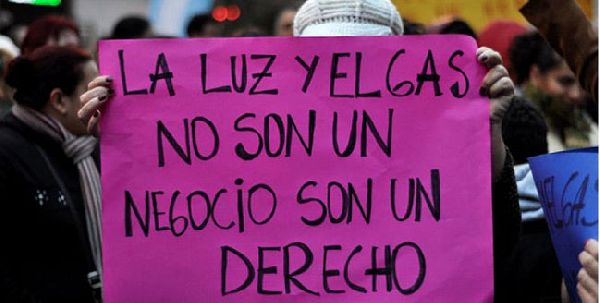 LA LUZ Y EL GAS
NO SON UN
NEGOCIO SON UN
DERECHO
EL GAS